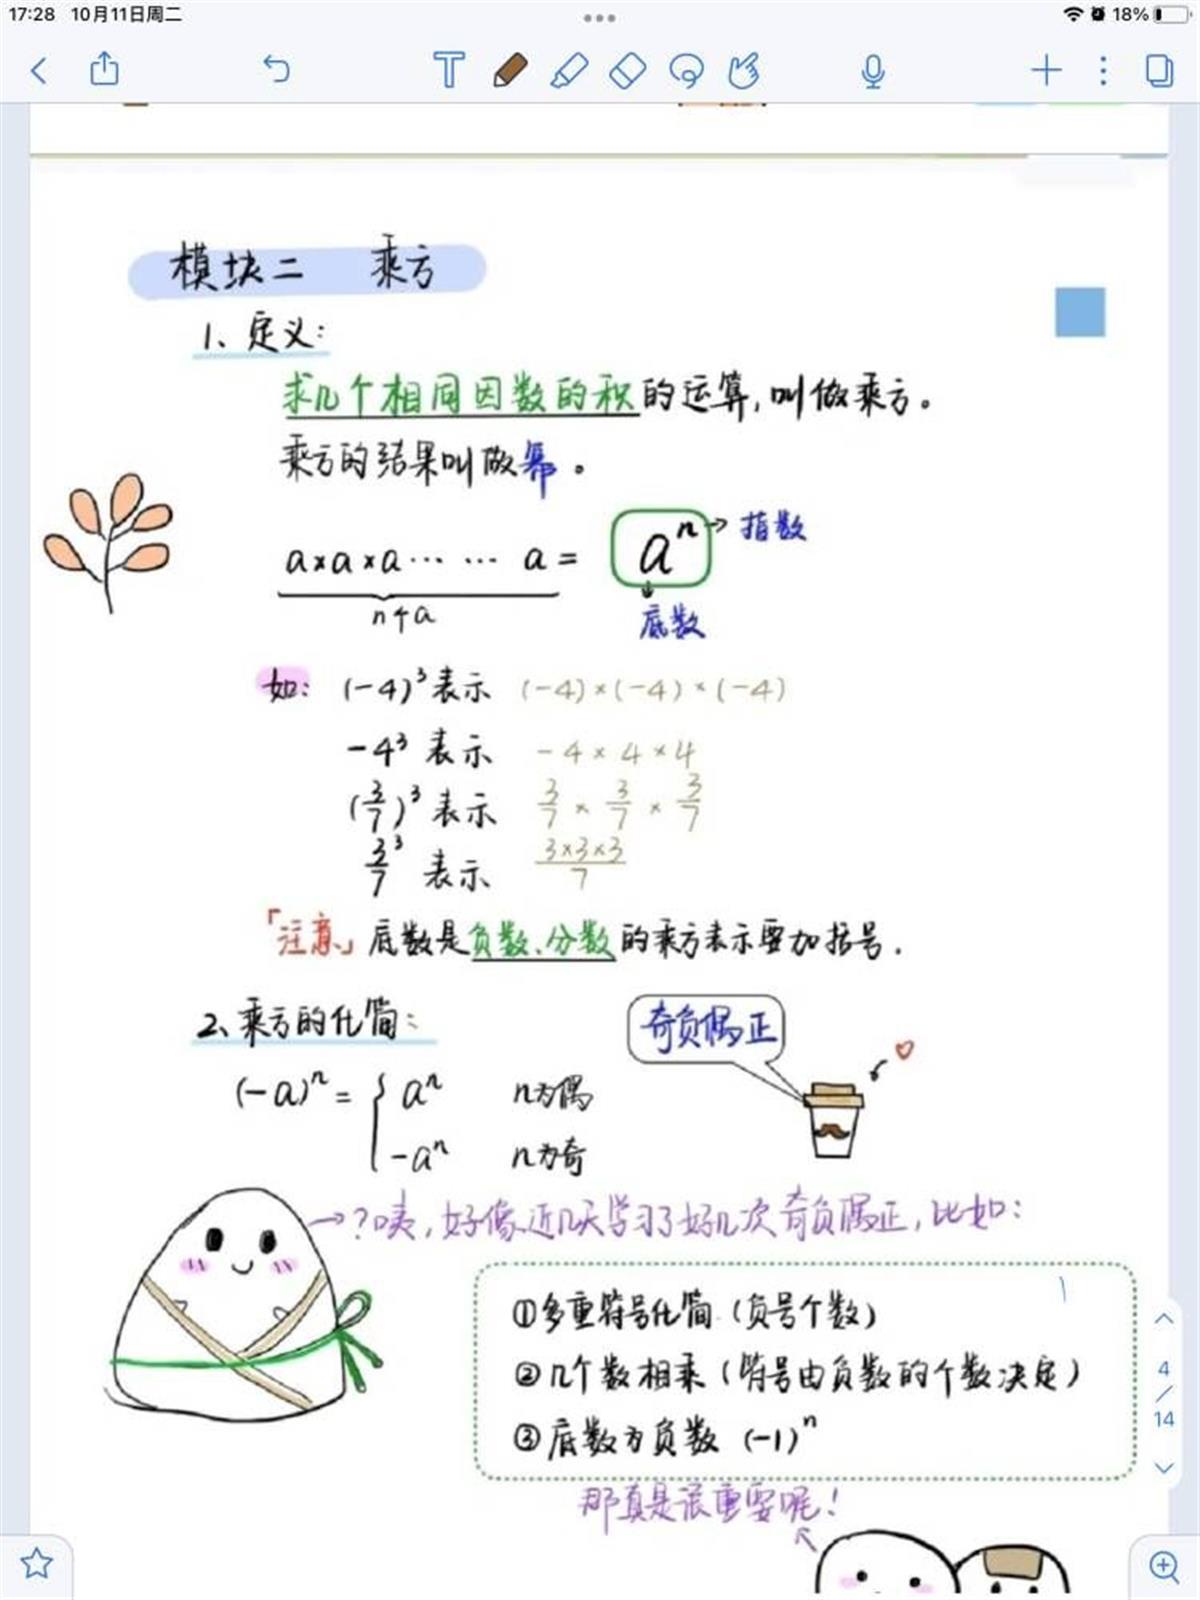 17:28 10月11日周二
18%
模块二 乘方
1、定义:
求几个相同因数的积的运算,叫做乘方。
乘方的结果叫做幂。
a×a×a…… a = aⁿ → 指数
n个a
底数
如: (-4)³表示 (-4)×(-4)×(-4)
-4³ 表示 -4×4×4
(3/7)³ 表示 3/7 × 3/7 × 3/7
3³/7 表示 3×3×3/7
「注意」底数是负数、分数的乘方表示要加括号.
2、乘方的化简:
奇负偶正
(-a)ⁿ = { aⁿ n为偶
-aⁿ n为奇
→?咦,好像近几天学习了好几次奇负偶正,比如:
①多重符号化简(负号个数)
②几个数相乘(符号由负数的个数决定)
③底数为负数 (-1)ⁿ
那真是很重要呢!
4
/
14